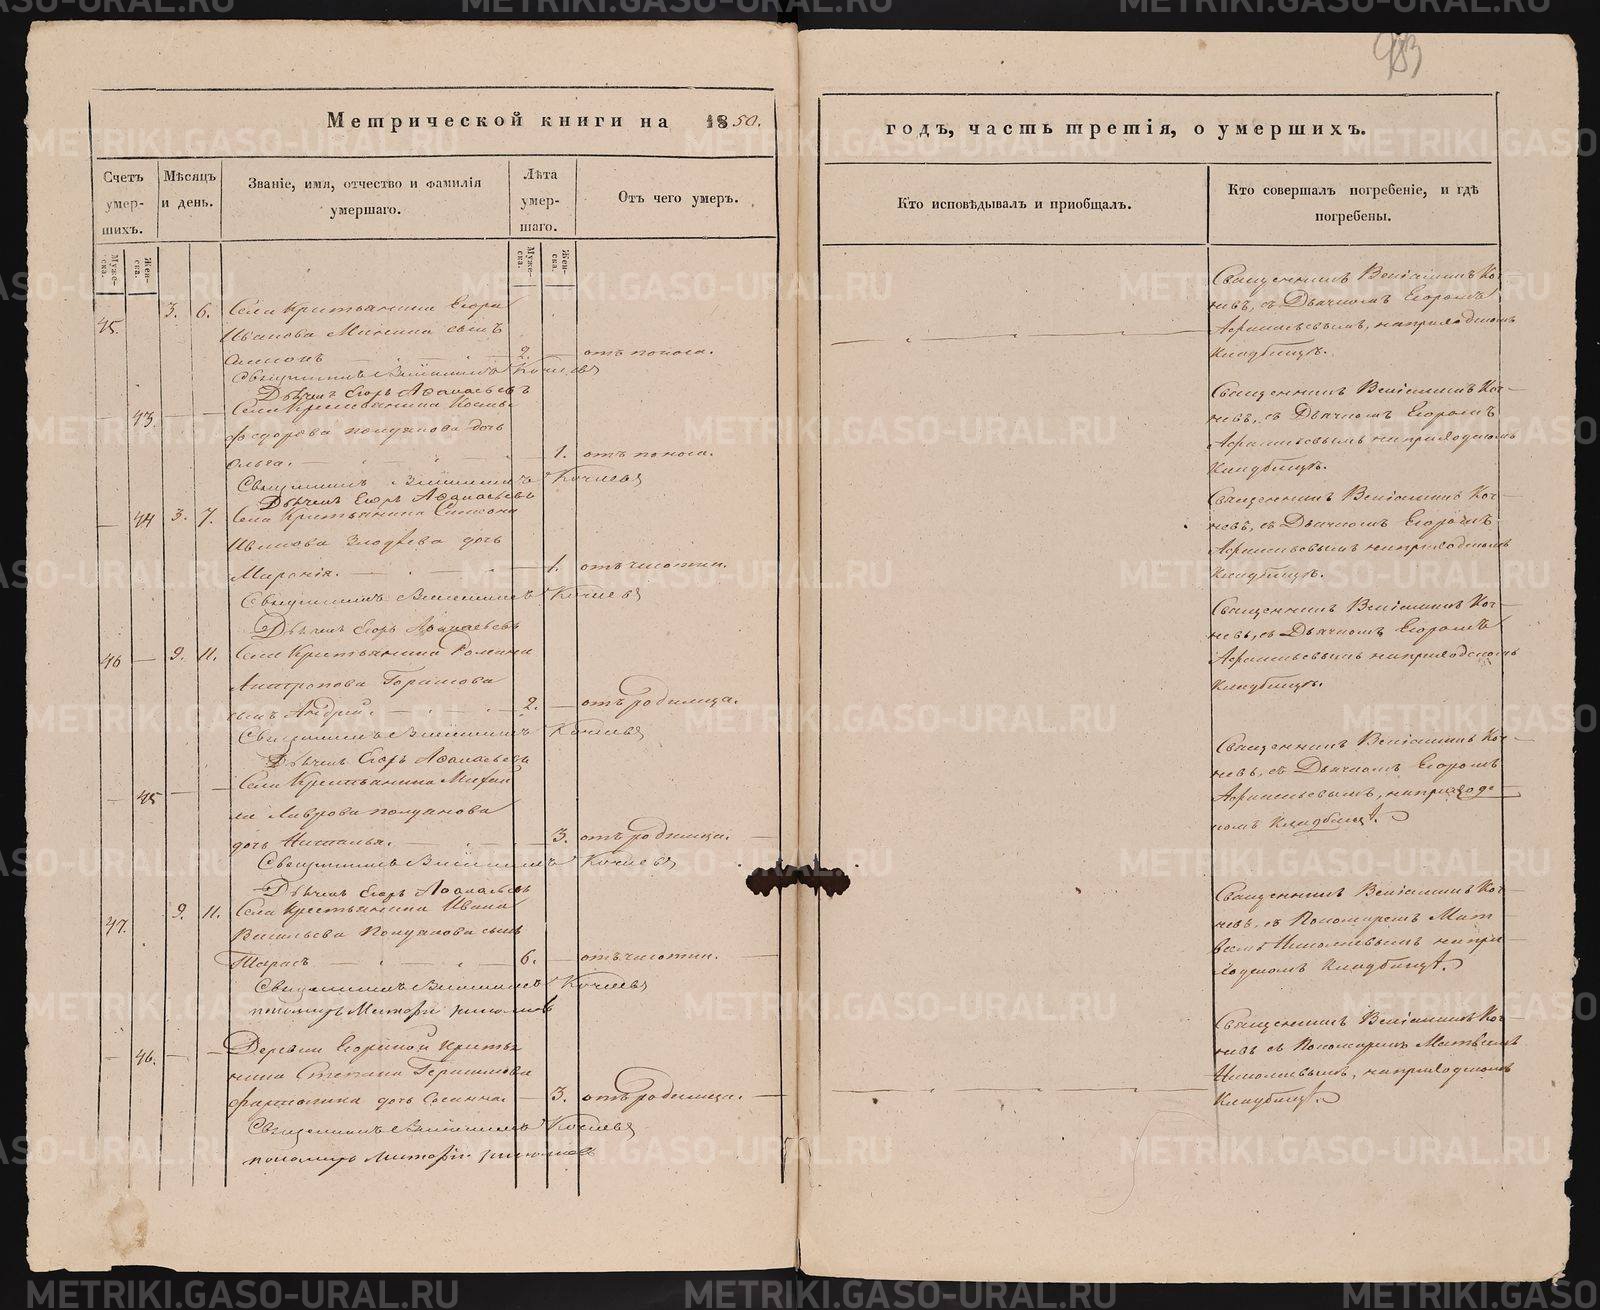 983
Метрической книги на 1850.
годъ, часть третія, о умершихъ.
Счетъ умер-шихъ.
Мѣсяцъ и день.
Званіе, имя, отчество и фамилія умершаго.
Лѣта умер-шаго.
Отъ чего умеръ.
Кто исповѣдывалъ и приобщалъ.
Кто совершалъ погребеніе, и гдѣ погребены.
Муже-ска.
Жен-ска.
Муже-ска.
Жен-ска.
45. 3. 6. Села Крестьянина Егора
Иванова сынъ
2. отъ поноса.
Священникъ Веніаминъ Кочневъ
Дьячекъ Егоръ Аѳанасьевъ
43. Села Крестьянина Косьмы
Федорова Полуянова дочь
Ольга. 1. отъ поноса.
Священникъ Веніаминъ Кочневъ
Дьячекъ Егоръ Аѳанасьевъ
44 3. 7. Села Крестьянина Симеона
Иванова дочь
1. отъ чахотки.
Священникъ Веніаминъ Кочневъ
Дьячекъ Егоръ Аѳанасьевъ
46 9. 11. Села Крестьянина Романа
Антропова
сынъ Андрей. 2. отъ родимца.
Священникъ Веніаминъ Кочневъ
Дьячекъ Егоръ Аѳанасьевъ
45 Села Крестьянина Михаи
ла Лаврова Полуянова
дочь Наталья. 3. отъ родимца.
Священникъ Веніаминъ Кочневъ
Дьячекъ Егоръ Аѳанасьевъ
47. 9. 11. Села Крестьянина Ивана
Васильева Полуянова сынъ
Тарасъ 6. отъ чахотки.
Священникъ Веніаминъ Кочневъ
46. Деревни Крестья
нина Степана Герасимова
дочь 3. отъ родимца.
Священникъ Веніаминъ Кочневъ
Священникъ Веніаминъ Коч
невъ, съ Дьячкомъ Егоромъ
Афанасьевымъ, на приходскомъ
Кладбищѣ.
Священникъ Веніаминъ Коч
невъ, съ Дьячкомъ Егоромъ
Афанасьевымъ на приходскомъ
Кладбищѣ.
Священникъ Веніаминъ Коч
невъ, съ Дьячкомъ Егоромъ
Афанасьевымъ на приходскомъ
Кладбищѣ.
Священникъ Веніаминъ Коч
невъ, съ Дьячкомъ Егоромъ
Афанасьевымъ на приходскомъ
Кладбищѣ.
Священникъ Веніаминъ Коч
невъ, съ Дьячкомъ Егоромъ
Афанасьевымъ, на приходс
комъ Кладбищѣ.
Священникъ Веніаминъ Коч
невъ, съ Пономаремъ Мат
на при
ходскомъ Кладбищѣ.
Священникъ Веніаминъ Коч
невъ съ Пономаремъ Матвеемъ
на приходскомъ
Кладбищѣ.
METRIKI.GASO-URAL.RU